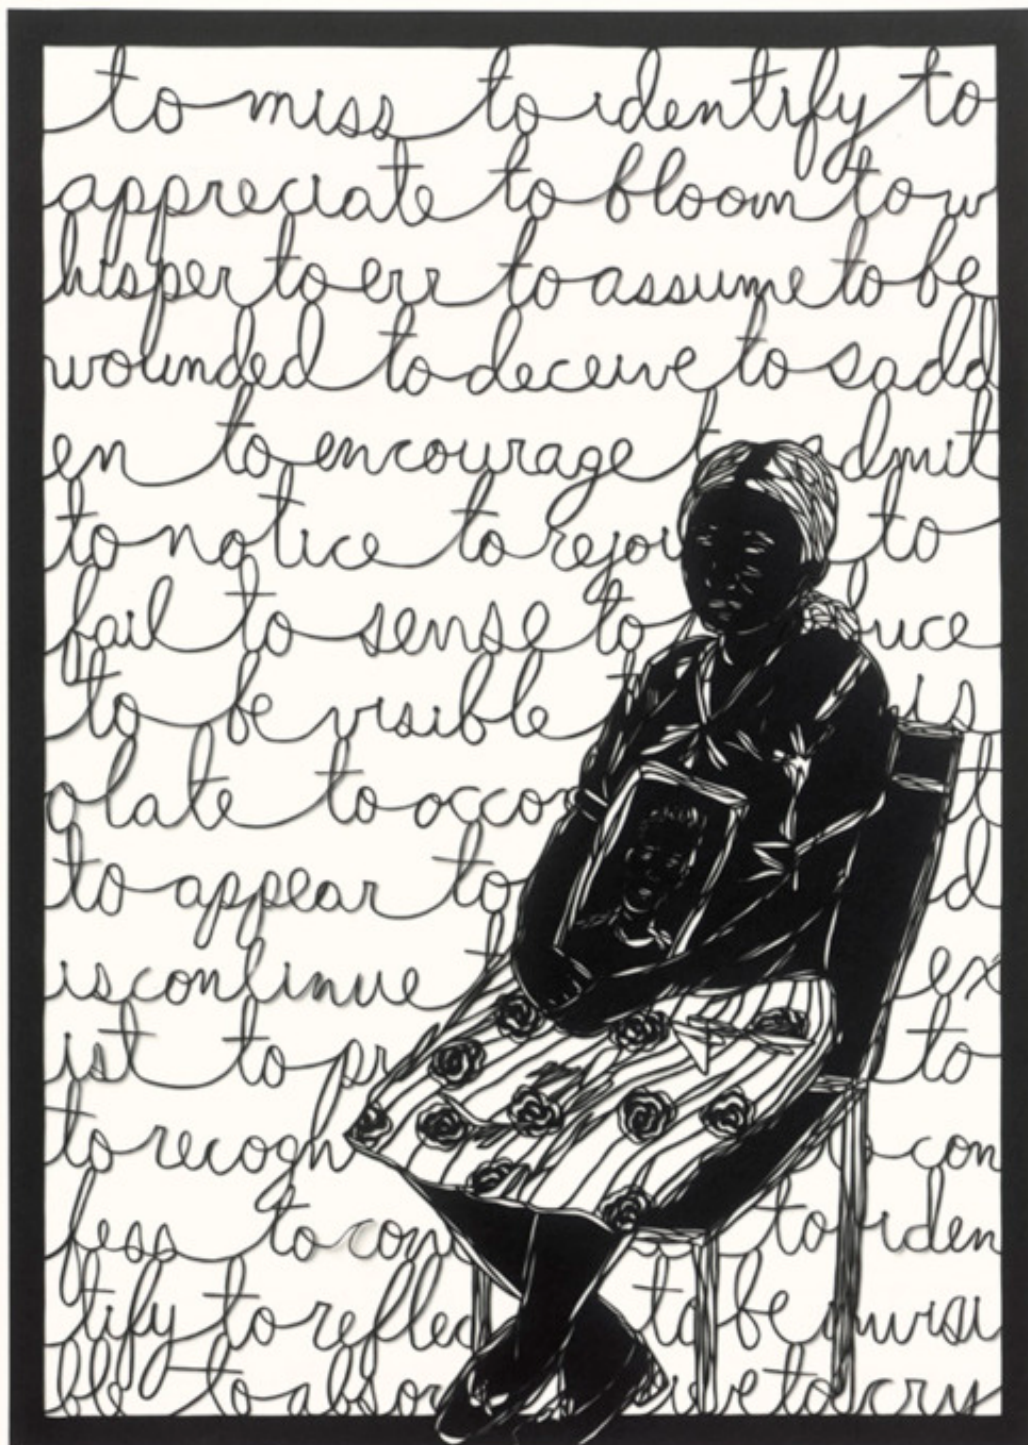 to miss to identify to
appreciate to bloom to w
hisper to err to assume to be
wounded to deceive to sadd
en to encourage t admit
to notice to rejoi to
fail to sense to uce
to be visible t is
olate to acco t
to appear to d
iscontinue t ex
ist to pr to
to recogn con
fess to con to iden
tify to reflec to be invisi
ble to absor ieve to cry